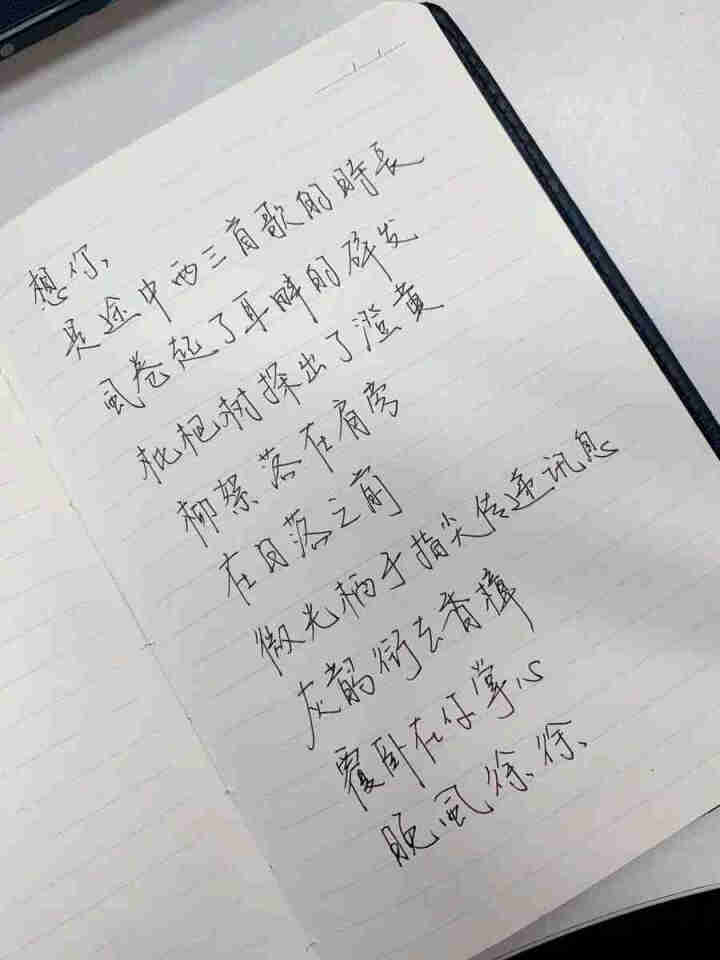 想你、
是途中两三首歌的時長
风卷起了耳畔的碎发
枇杷树探出了澄黄
柳絮落在肩旁
在日落之前
微光栖于指尖传递讯息
灰鹊衔去香樟
覆卧在你掌心
晚风徐徐、